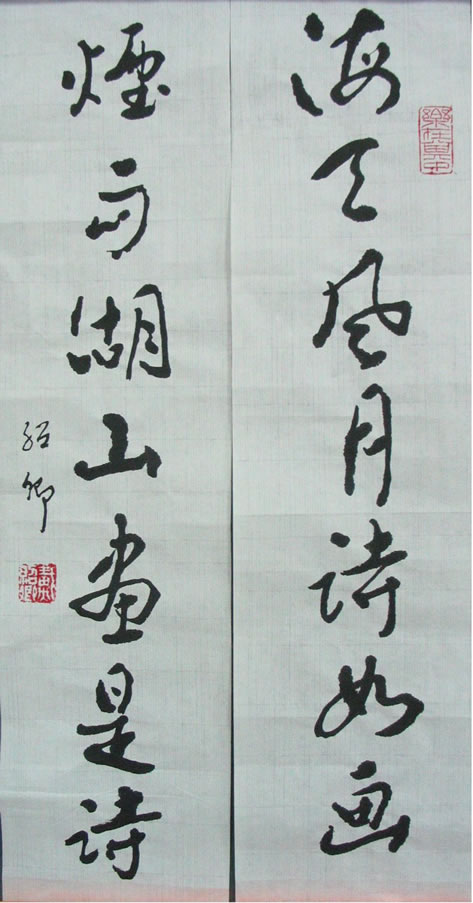 海天风月诗如画
煙雨湖山畫是詩
绍卿